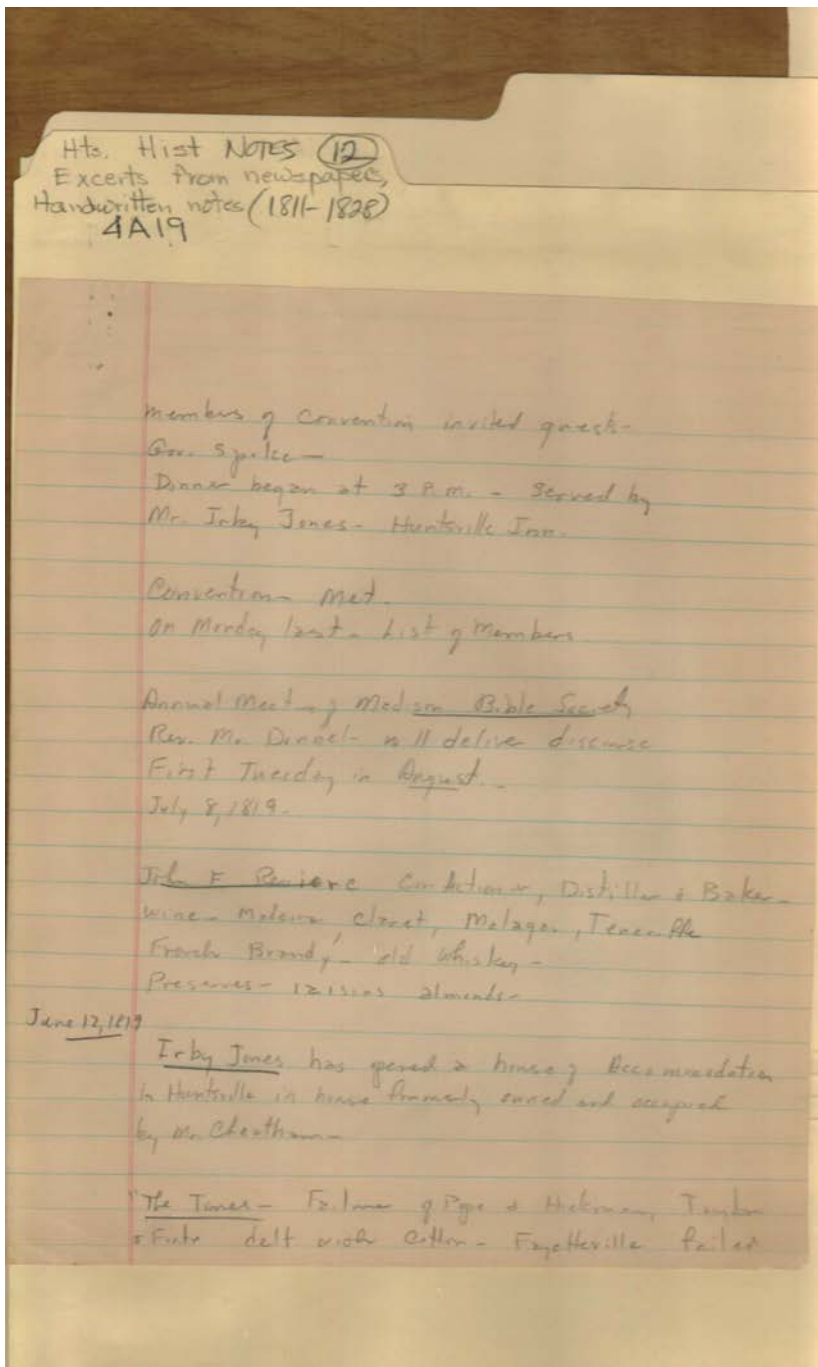 Hts. Hist NOTES 12
Excerts from newspapers,
Handwritten notes (1811-1828)
4A19
members of Convention invited guests-
Gov. spoke-
Dinner began at 3 P.m. - Served by
Mr. Irby Jones - Huntsville Inn.
Convention- met.
on Monday last - List of Members
Annual Meet- of Madison Bible Society
Rev. Mr. Donnel- will deliver discourse
First Tuesday in August.-
July 8, 1819.
John F Confectioner, Distiller & Baker-
wine- Madeira, claret, Malaga, Teneriffe
French Brandy- old whiskey-
Preserves- raisins almonds-
June 12, 1819
Irby Jones has opened a house of Accommodation
in Huntsville in house formerly owned and occupied
by Mr. Cheatham-
"The Times- Failure of Pope & Hickman, Taylor
& delt with Cotton- Fayetteville failed